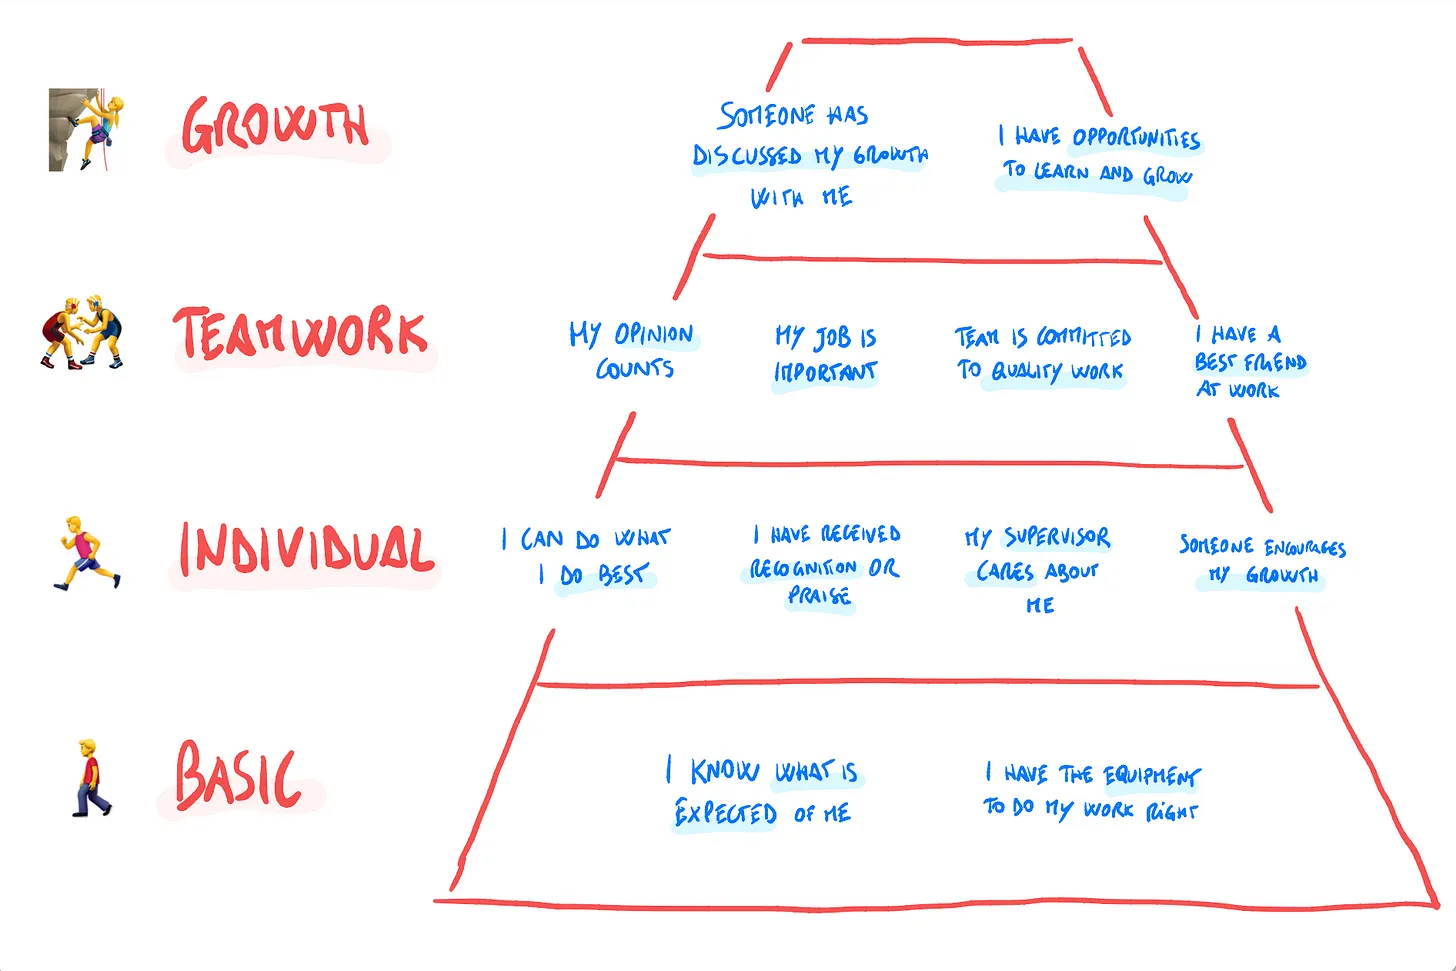 GROWTH
SOMEONE HAS
DISCUSSED MY GROWTH
WITH ME
I HAVE OPPORTUNITIES
TO LEARN AND GROW
TEAMWORK
MY OPINION
COUNTS
MY JOB IS
IMPORTANT
TEAM IS COMMITTED
TO QUALITY WORK
I HAVE A
BEST FRIEND
AT WORK
INDIVIDUAL
I CAN DO WHAT
I DO BEST
I HAVE RECEIVED
RECOGNITION OR
PRAISE
MY SUPERVISOR
CARES ABOUT
ME
SOMEONE ENCOURAGES
MY GROWTH
BASIC
I KNOW WHAT IS
EXPECTED OF ME
I HAVE THE EQUIPMENT
TO DO MY WORK RIGHT